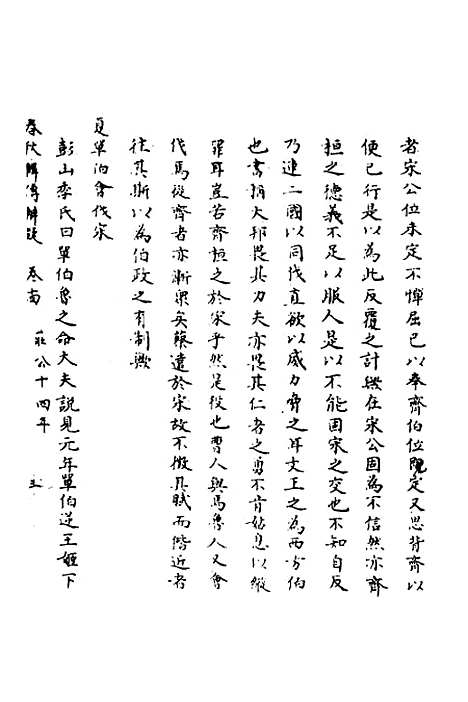 者宋公位未定不憚屈已以奉齊伯位既定又思背齊以
便已行是以為此反覆之計縱在宋公固為不信然亦齊
桓之德義不足以服人是以不能固宋之交也不知自反
乃連二國以同伐直欲以威力脅之耳文王之為西方伯
也書稱大邦畏其力夫亦畏其仁者之勇不肯姑息以縱
罪耳豈若齊桓之於宋乎然是役也曹人與焉魯人又會
伐焉從齊者亦漸眾矣蔡遠於宋故不徵其賦而偕近者
往其斯以為伯政之有制歟
夏單伯會伐宋
彭山季氏曰單伯魯之命大夫說見元年單伯逆王姬下
春秋輯傳辨疑 卷 莊公十四年